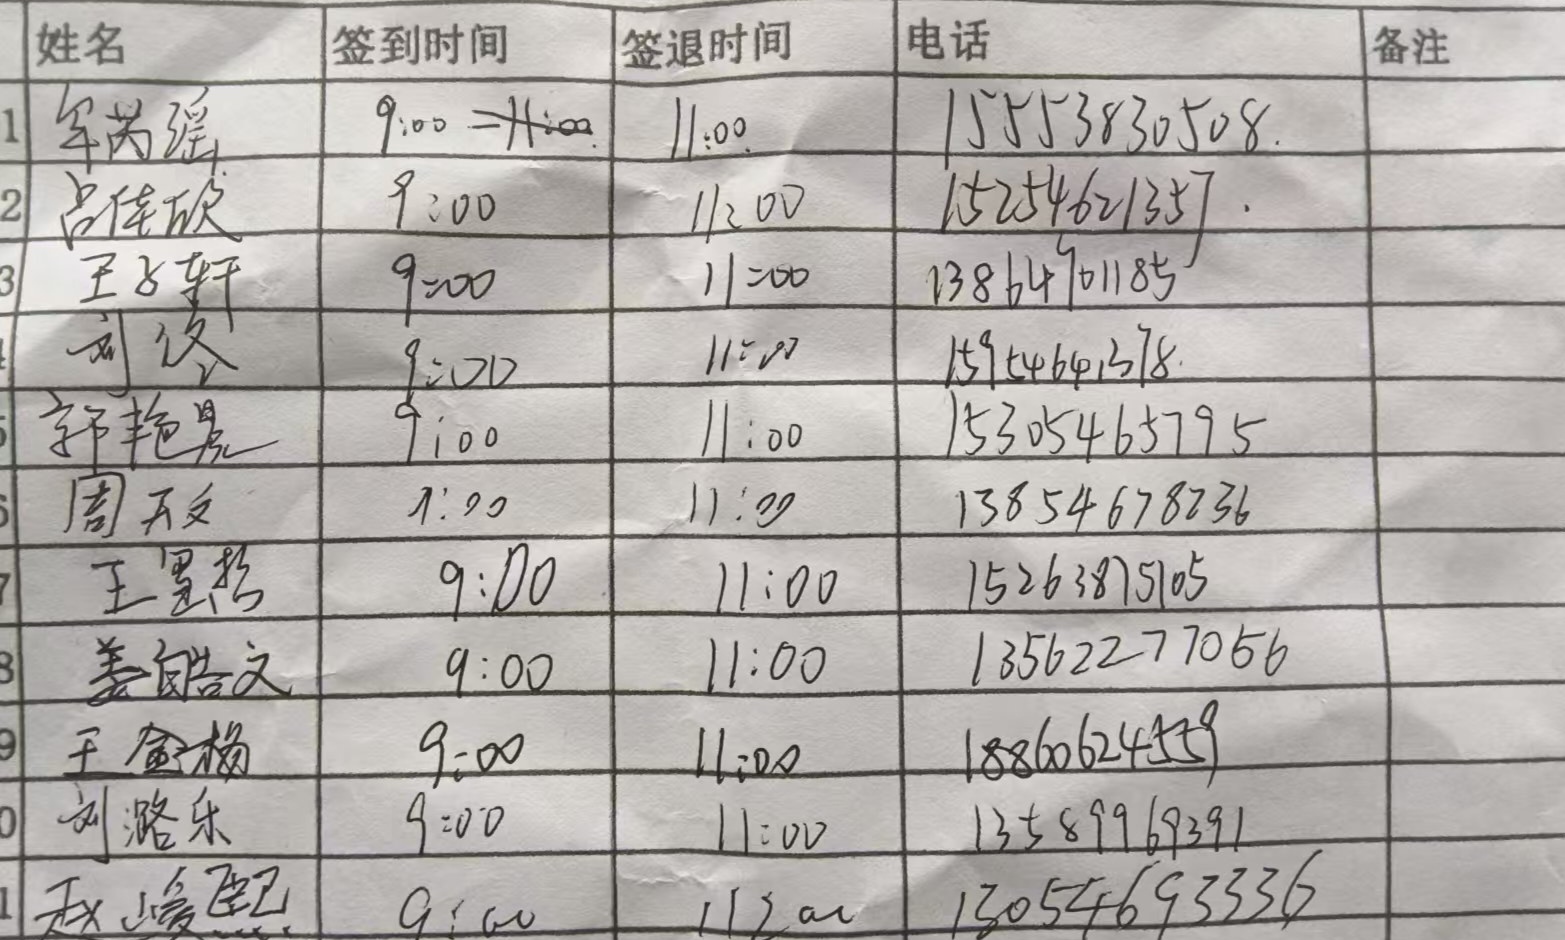 姓名 签到时间 签退时间 电话 备注
1 牟芮瑶 9:00 11:00 15553830508.
2 吕佳欣 9:00 11:00 15254621357.
3 王子轩 9:00 11:00 13864701185
刘佟 9:00 11:00 15954641378.
郭艳晨 9:00 11:00 15305465795
周天文 9:00 11:00 13854678236
王 9:00 11:00 15263875105
姜皓文 9:00 11:00 13562277056
9 王金杨 9:00 11:00 18860624559
0 刘潞乐 9:00 11:00 13589969391
1 赵 9:00 11:00 13054693336